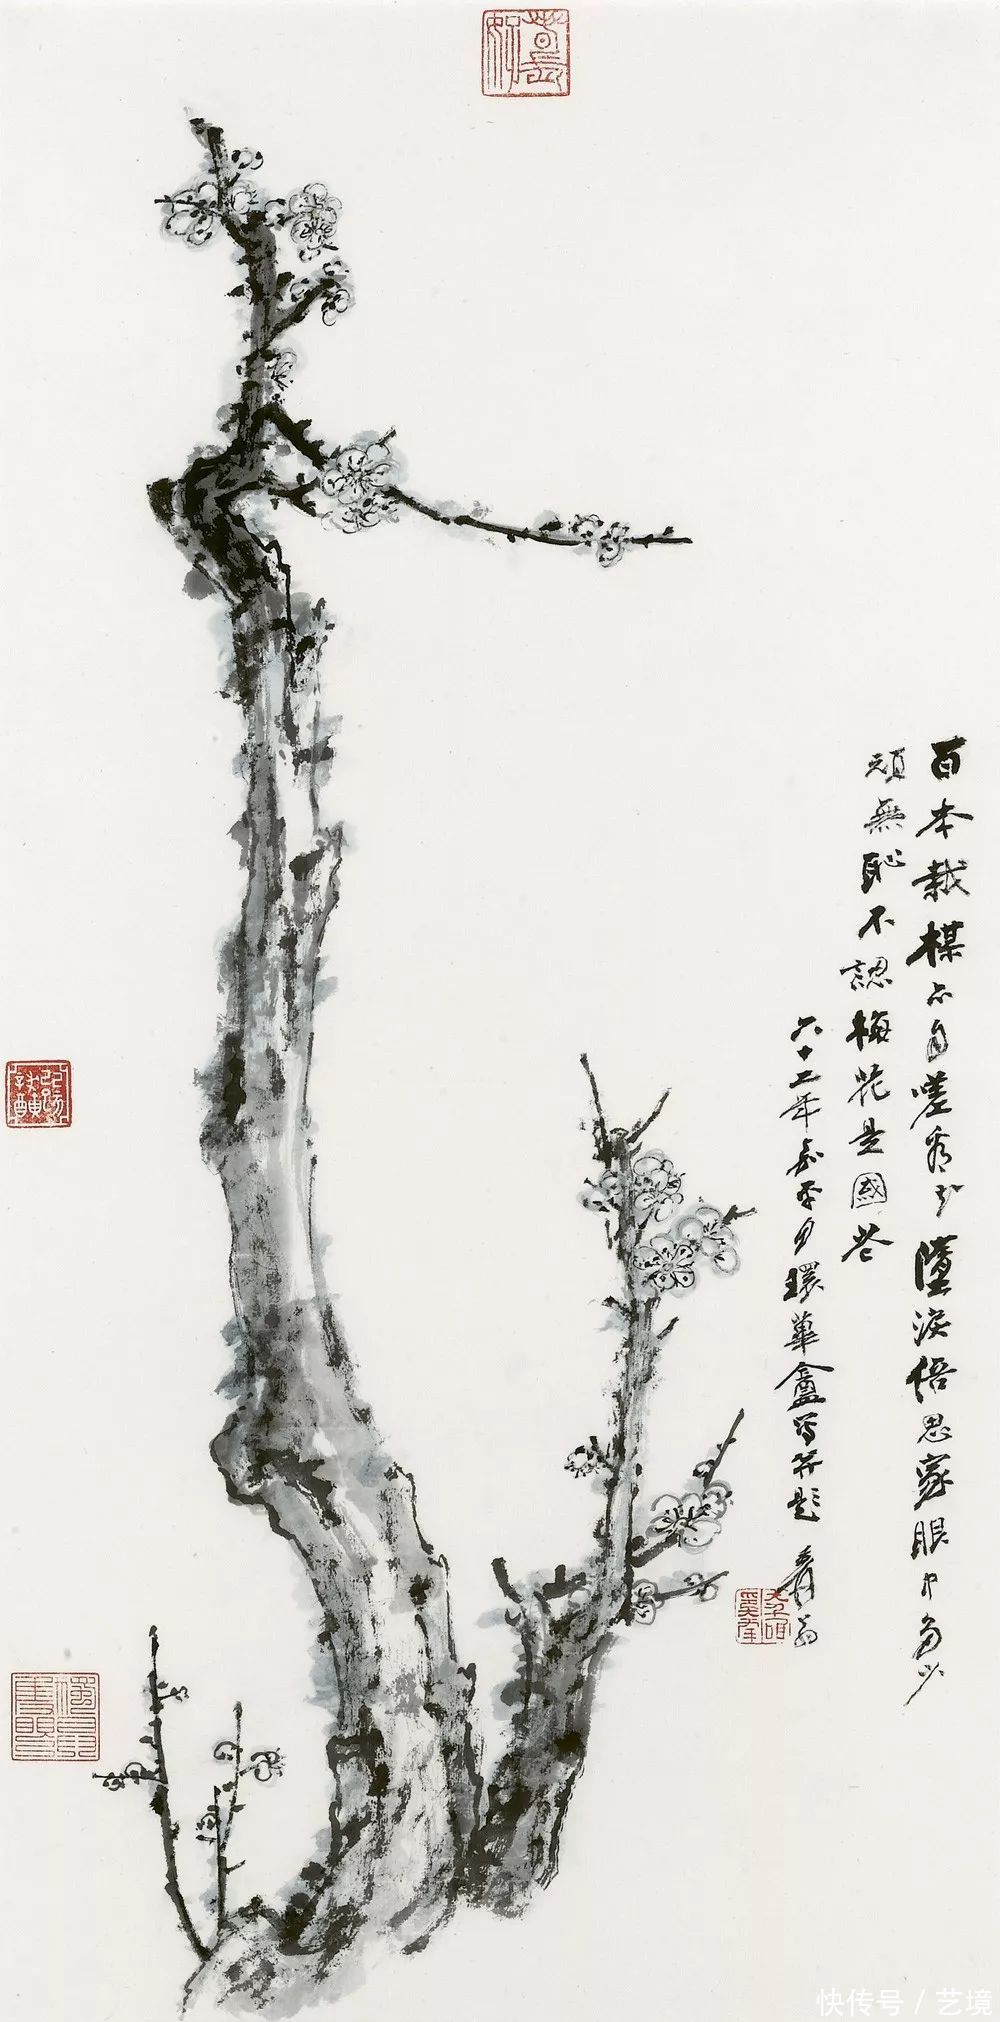 百本栽楳亦自嗟看花墮淚倍思家眼中多少
頑無恥不認梅花是國花
六十二年嘉平月環蓽盦寫并題 爰翁
快传号 / 艺境